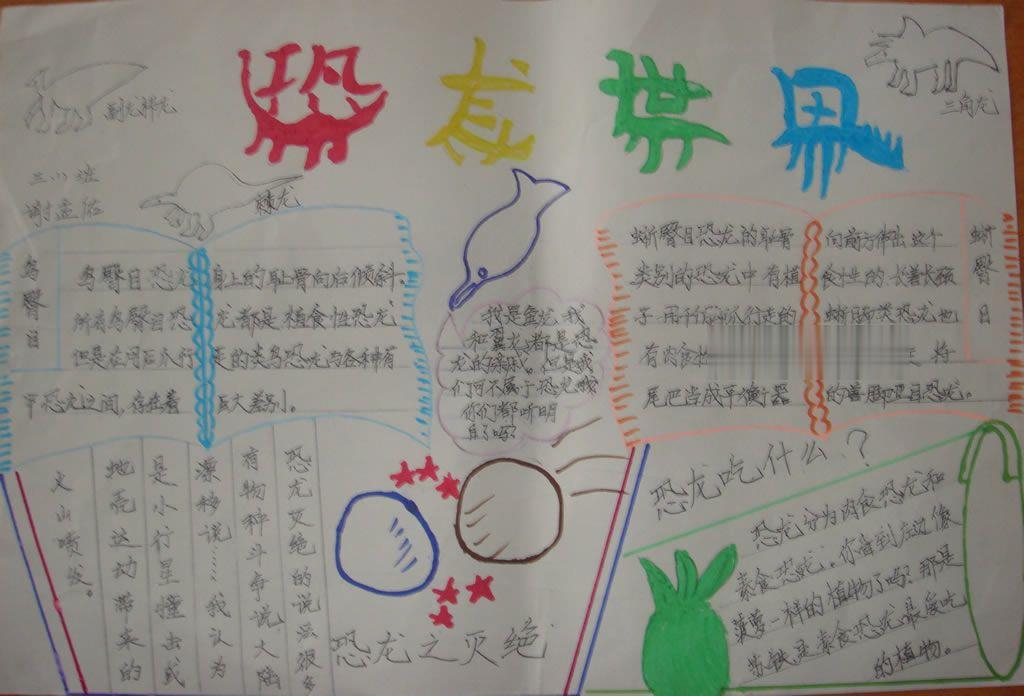 恐龙世界
副龙栉龙
三角龙
三(1)班
棘龙
鸟臀目
鸟臀目恐龙身上的耻骨向后倾斜。
所有鸟臀目恐龙都是植食性恐龙
但是在用后行走的类鸟恐龙与各种有
甲恐龙之间,存在着巨大差别。
我是鱼龙,我
和翼龙都是恐
龙的亲戚。但是我
们可不属于恐龙哦
你们都听明
白了吗?
蜥臀目恐龙的耻骨向前方伸出这个
类别的恐龙中有植食性的长着长颈
子用行走的蜥脚类恐龙也
有肉食 将
尾巴当成平衡器的兽脚亚目恐龙。
蜥臀目
恐龙灭绝的说法很多
有物种斗争说、大陆
漂移说……我认为
是小行星撞击或
地壳运动带来的
火山喷发。
恐龙之灭绝
恐龙吃什么?
恐龙分为肉食恐龙和
素食恐龙。你看到左边像
菠萝一样的植物了吗?那是
苏铁是素食恐龙最爱吃
的植物。